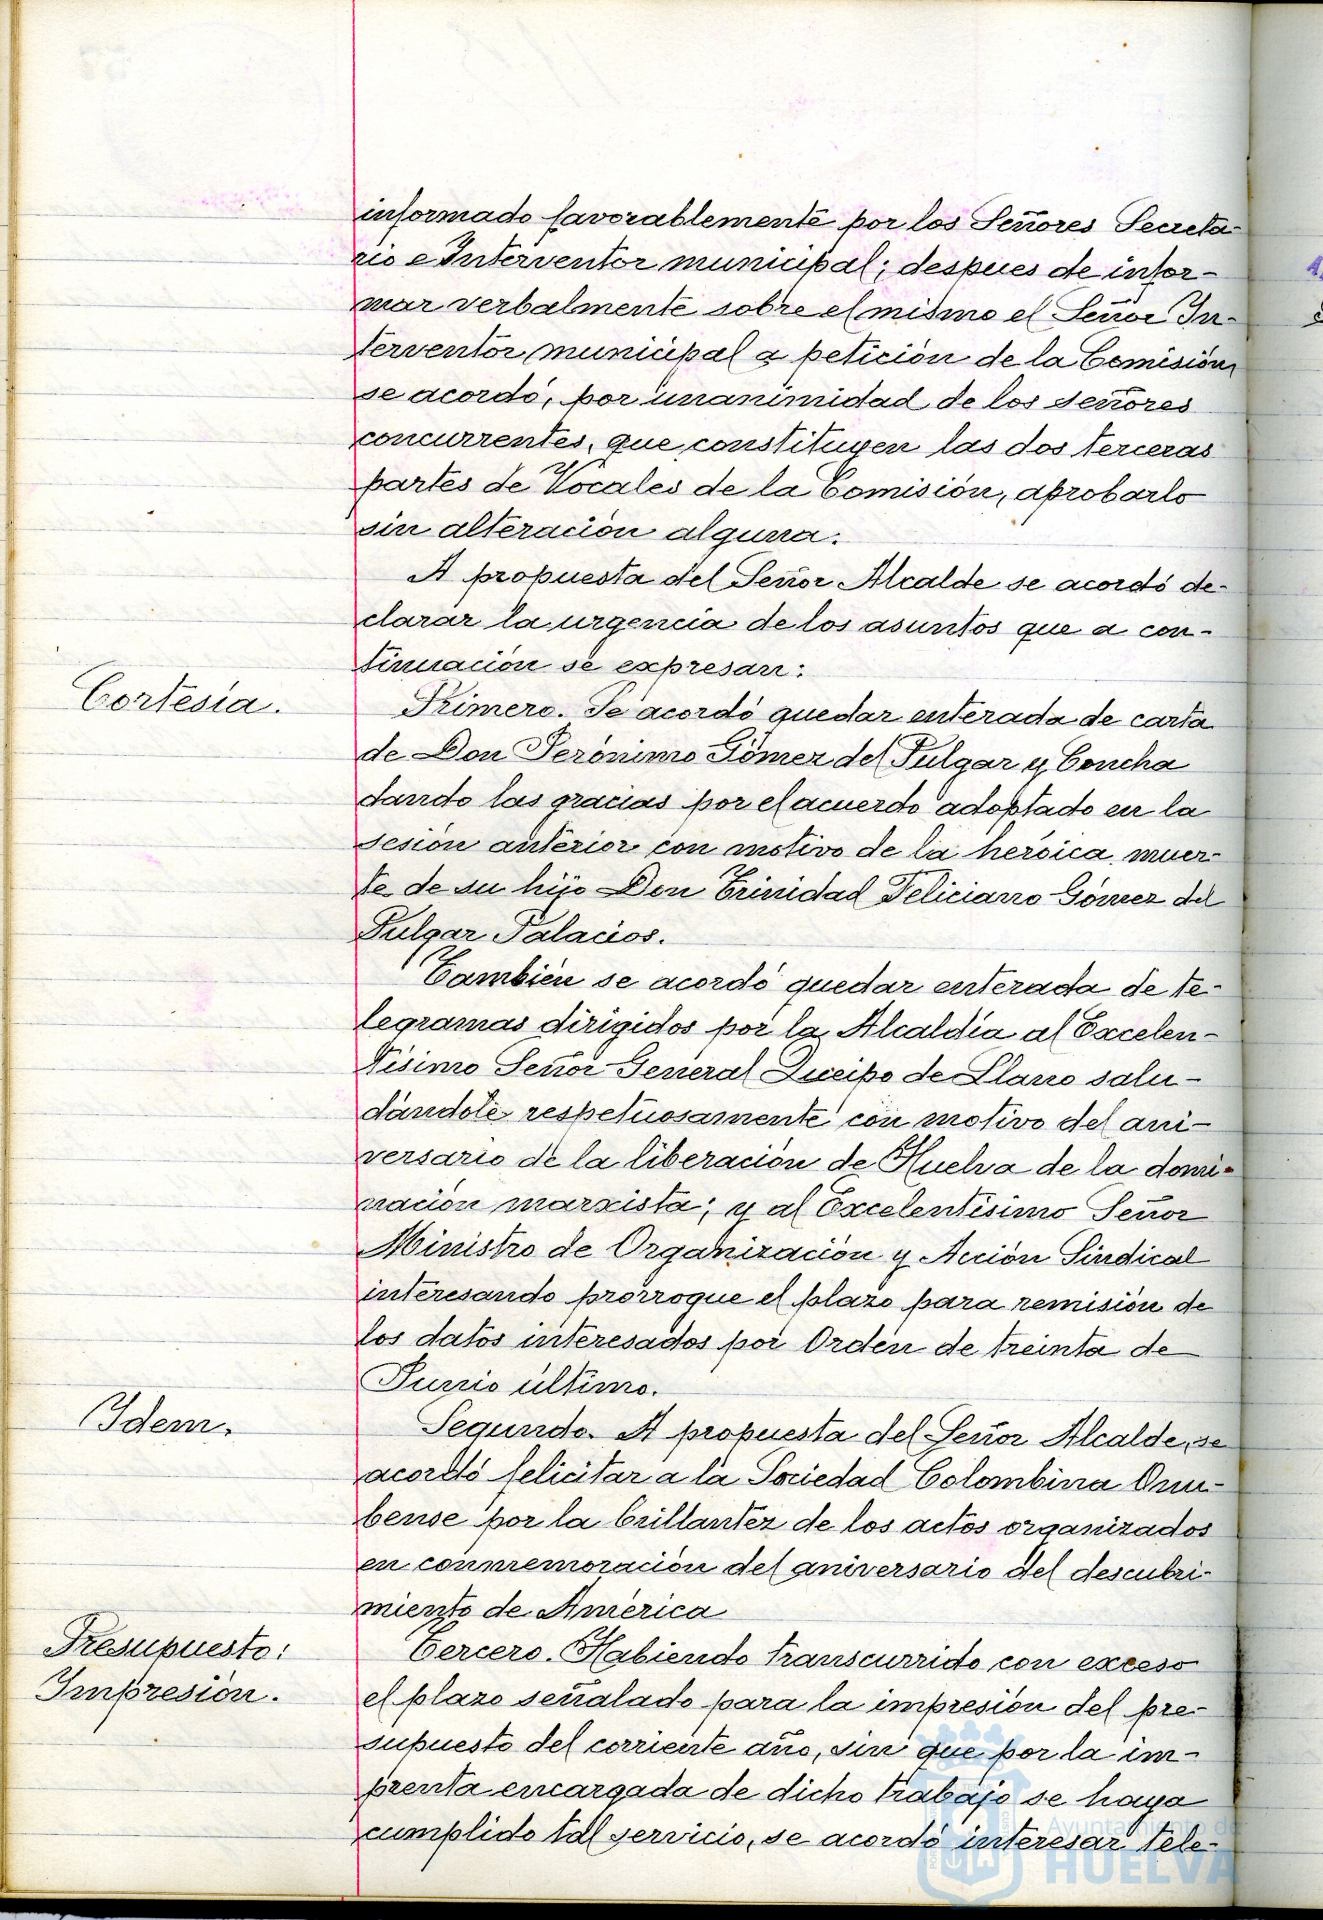 informado favorablemente por los Señores Secreta-
rio e Interventor municipal; despues de infor-
mar verbalmente sobre el mismo el Señor In-
terventor municipal a petición de la Comisión,
se acordó, por unanimidad de los señores
concurrentes, que constituyen las dos terceras
partes de Vocales de la Comisión, aprobarlo
sin alteración alguna.
A propuesta del Señor Alcalde se acordó de-
clarar la urgencia de los asuntos que a con-
tinuación se expresan:
Cortesía.
Primero. Se acordó quedar enterada de carta
de Don Jerónimo Gómez del Pulgar y Concha
dando las gracias por el acuerdo adoptado en la
sesión anterior con motivo de la heróica muer-
te de su hijo Don Trinidad Feliciano Gómez del
Pulgar Palacios.
También se acordó quedar enterada de te-
legramas dirigidos por la Alcaldía al Excelen-
tísimo Señor General Queipo de Llano salu-
dándole respetuosamente con motivo del ani-
versario de la liberación de Huelva de la domi-
nación marxista; y al Excelentísimo Señor
Ministro de Organización y Acción Sindical
interesando prorrogue el plazo para remisión de
los datos interesados por Orden de treinta de
Junio último.
Idem.
Segundo. A propuesta del Señor Alcalde, se
acordó felicitar a la Sociedad Colombina Onu-
bense por la brillantez de los actos organizados
en conmemoración del aniversario del descubri-
miento de América
Presupuesto:
Impresión.
Tercero. Habiendo transcurrido con exceso
el plazo señalado para la impresión del pre-
supuesto del corriente año, sin que por la im-
prenta encargada de dicho trabajo se haya
cumplido tal servicio, se acordó interesar tele-
Ayuntamiento de
HUELVA